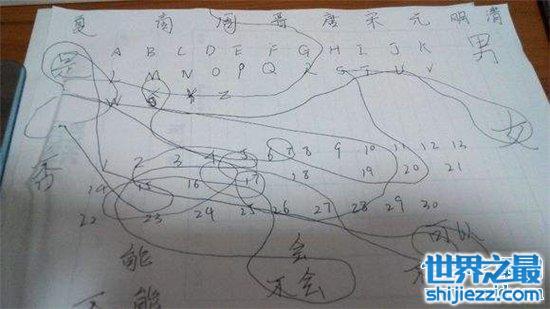 夏 商 周 晋 唐 宋 元 明 清
A B C D E F G H I J K 男
L M N O P Q R S T U V
是
W X Y Z 女
否
1 2 3 4 5 6 7 8 9 10 11 12 13
14 15 16 17 18 19 20 21
22 23 24 25 26 27 28 29 30
可以
能 会 不
不能 不会
世界之最
shijiezz.com